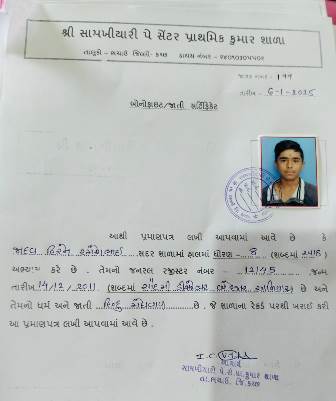 શ્રી સામખીયારી પે સેંટર પ્રાથમિક કુમાર શાળા
તાલુકો - ભચાઉ જિલ્લો- કચ્છ
જાવક નંબર - 197
તારીખ - 6-1-2025
બોનોફાઇટ/જાતી સર્ટિફિકેટ
આથી પ્રમાણપત્ર લખી આપવામાં આવે છે કે
સદર શાળામાં હાલમાં ધોરણ - 8 (શબ્દમાં આઠ)
અભ્યાસ કરે છે . તેમનો જનરલ રજીસ્ટર નંબર - 12145 . જન્મ
તારીખ 14/12/2011 (શબ્દમાં ચૌદમી ડીસેમ્બર બે હજાર અગીયાર) છે અને
તેમનો ધર્મ અને જાતી હિન્દુ છે . જે શાળાના રેકર્ડ પરથી ખરાઈ કરી
આ પ્રમાણપત્ર લખી આપવામાં આવે છે .
આચાર્ય
સામખીયારી પે.સે.પ્રા.કુમાર શાળા
તા.ભચાઉ. જિ.કચ્છ